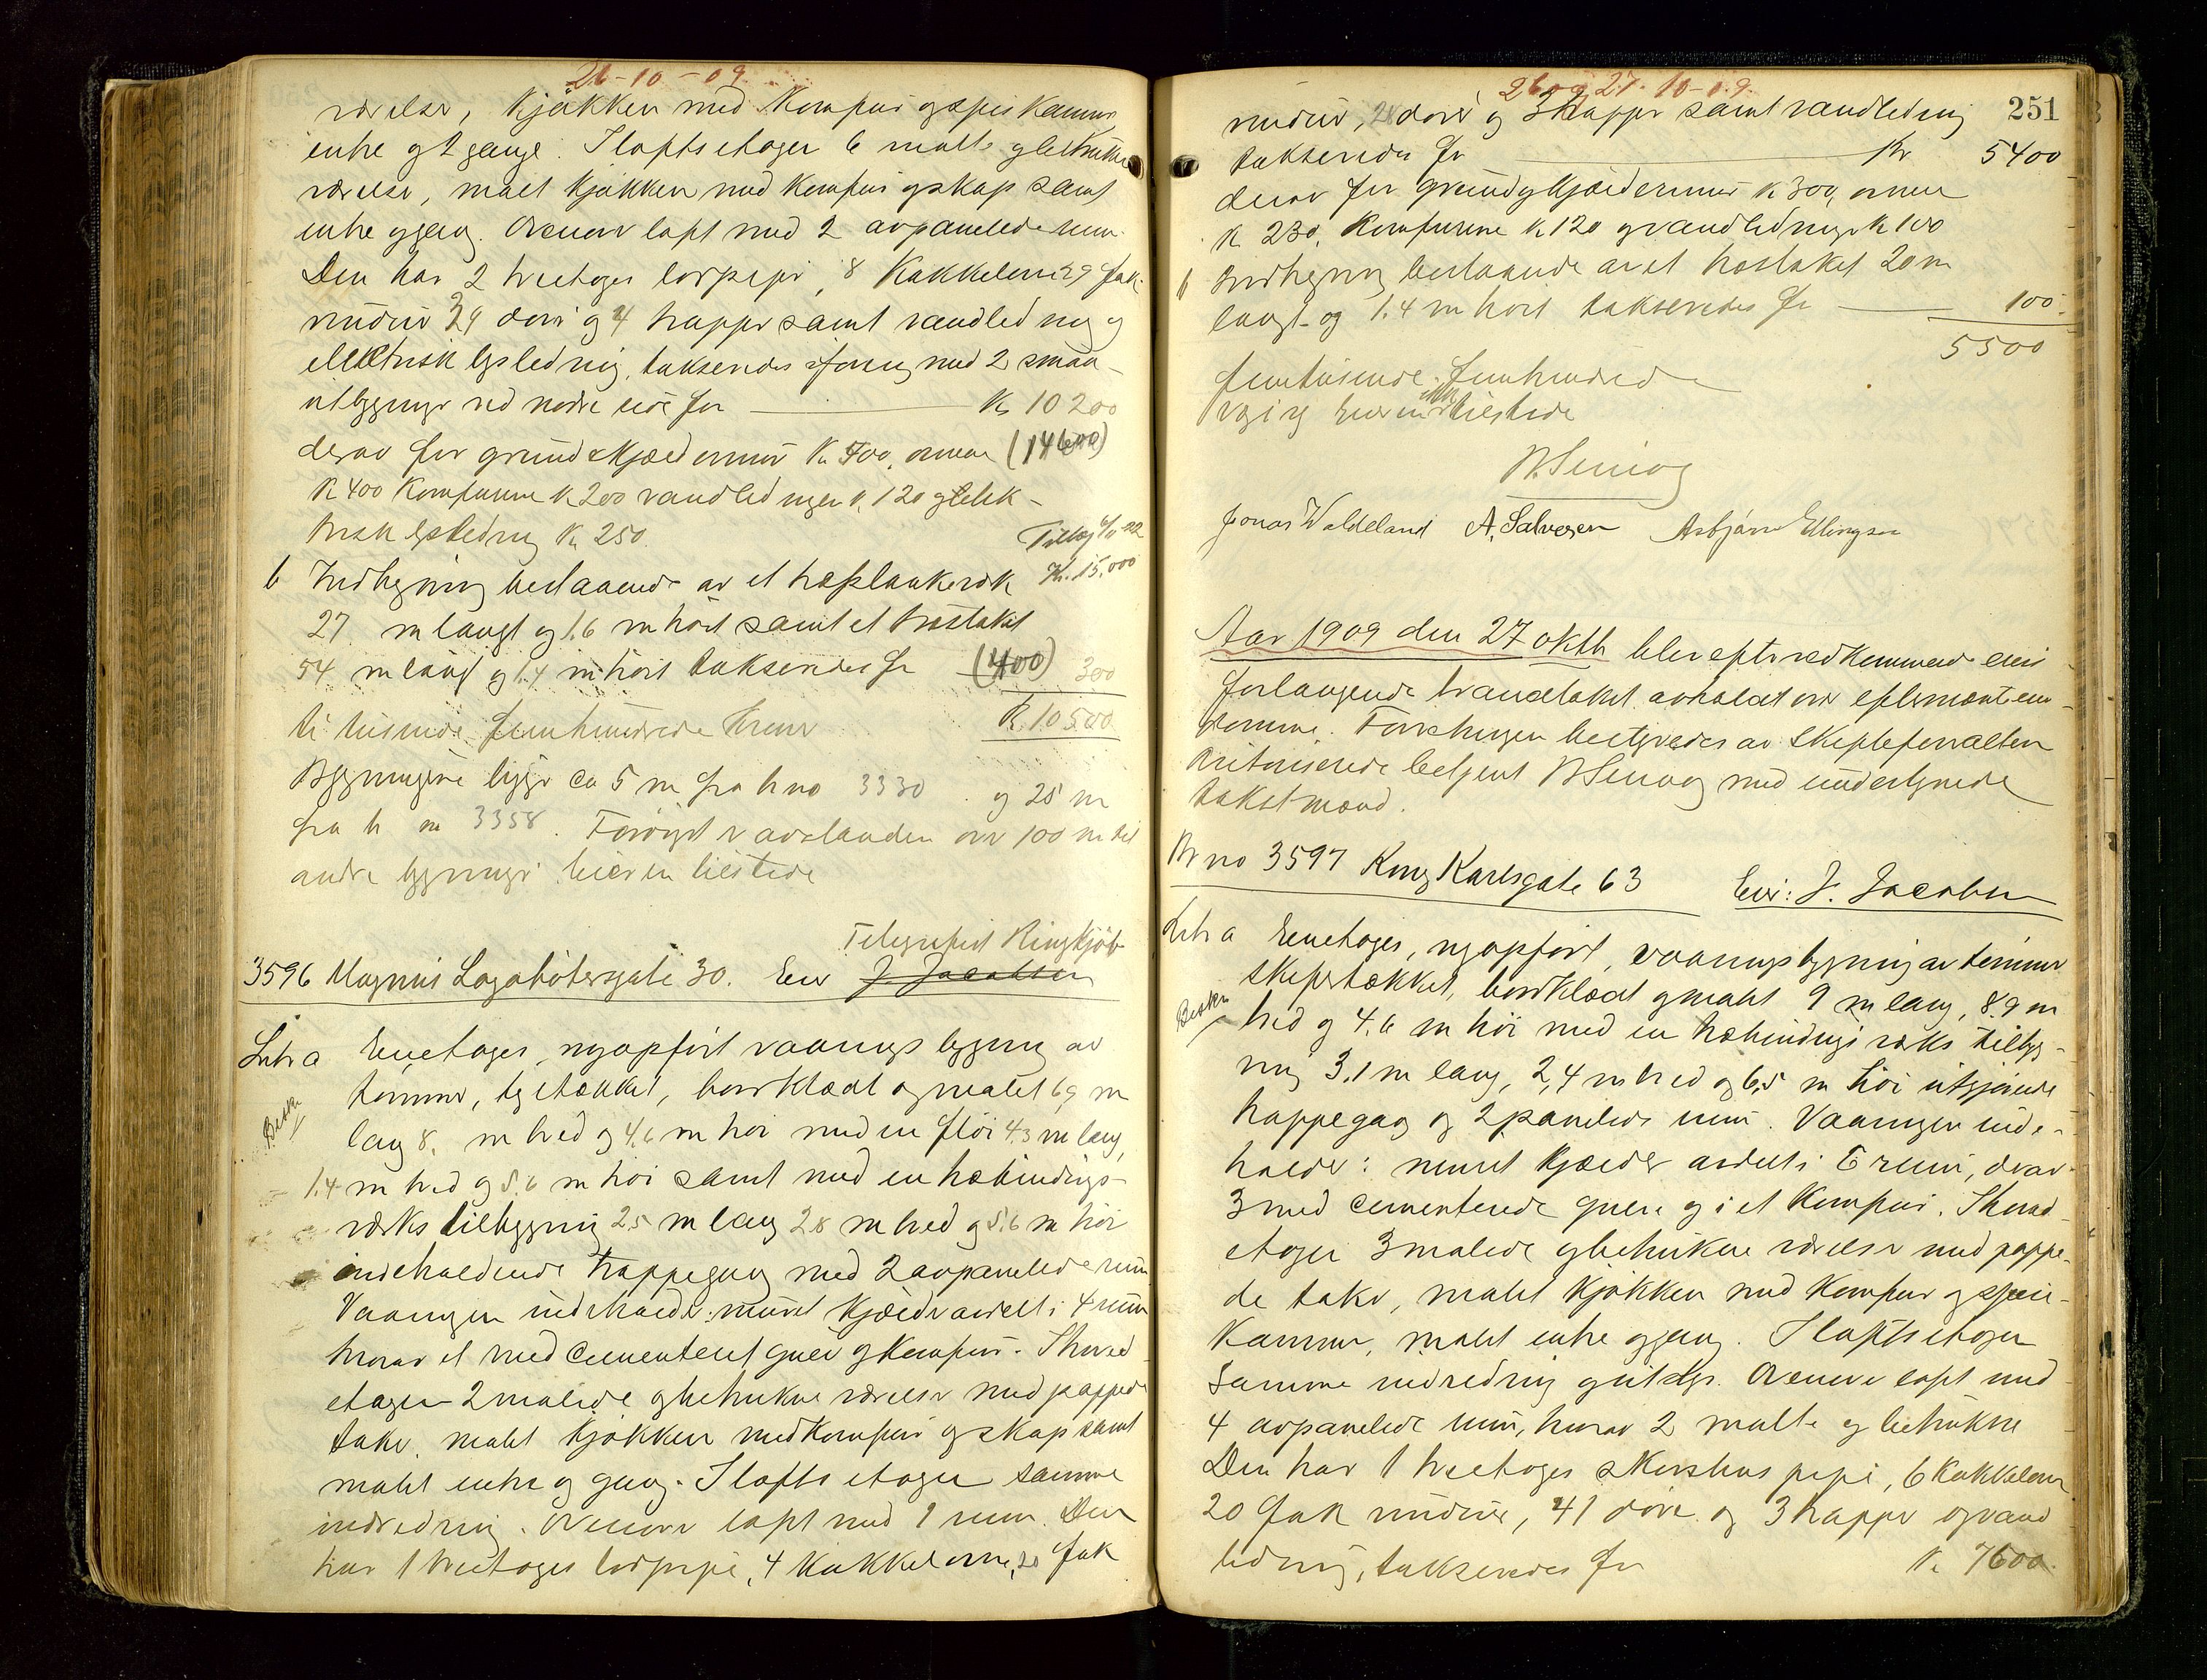 26-10-09
værelser, kjøkken med komfur og spiskammer
entre og 2 gange. I loftsetagen 6 malte og betrukne
værelser, malt kjøkken med komfur og skap samt
entre og gang. Ovenover loft med 2 avpanelede rum.
Den har 2 treetages lodpiper, 8 kakkelovne 29 fak
vinduer 29 døre og 4 trapper samt vandledning og
elektrisk lysledning, takseredes iforening med 2 smaa
utbygninger ved nedre side for Kr 10 200
derav for grund & kjældermur Kr. 700, ovnene (14600)
K 400 komfurene K 200 vandledningen K 120 og elek-
trisk lysledning K. 250.
Tillæg 6/11 22
Kr. 15.000
b Indhegning bestaaende av et træplankeværk
27 m langt og 1.6 m høit samt et træstaket
54 m langt og 1.4 m høit takseredes for (400) 300
ti tusinde femhundrede kroner K. 10500
Bygningene ligger ca 5 m fra br no 3330 og 25 m
fra br no 3358. Forøvrigt er avstanden over 100 m til
andre bygninger. Eieren tilstede
Telegrafist Ringkjøb
3596 Magnus Lagabøtersgate 30. Eier J. Jacobsen
Litra a Eenetages, nyopført vaaningsbygning av
Besk.
tømmer, teglstækket, bordklædt og malet 6,9 m
lang 8. m bred og 4,6 m høi med en fløi 4.3 m lang,
1.4 m bred og 5.6 m høi samt med en træbindings-
verks tilbygning 2.5 m lang 2.8 m bred og 5.6 m høi
indeholdende trappegang med 2 avpanelede rum
Vaaningen indeholder: muret kjælder avdelt i 4 rum
hvorav et med cementeret gulv og komfur. I hoved-
etagen 2 malede og betrukne værelser med pappede
take, malet kjøkken med komfur og skap samt
malet entre og gang. I loftsetagen samme
indredning. Ovenover loft med 1 rum. Den
har 1 treetages lodpipe, 4 kakkelovne, 20 fak
26 og 27-10-09.
251
vinduer, 28 døre og 3 trapper samt vandledning
takseredes for Kr 5400
derav for grund og kjældermur K 300, ovnene
K 230, komfurene K 120 og vandledningen K 100
b Indhegning bestaaende av et træstaket 20 m
langt og 1.4 m høit takseredes for 100.
5500
femtusinde femhundrede
Eieren ikke tilstede
Jonas Waldeland A. Salvesen Asbjørn Ellingsen
Aar 1909 den 27 oktb. blev efter vedkommende eiers
forlangende brandtakst avholdt over efternævnte eien-
domme. Forretningen bestyredes av skifteforvalterens
autoriserede betjent med undertegnede
takstmænd.
Br no 3597 Kong Karlsgate 63 Eier: J. Jacobsen
Litra a Eenetages, nyopført, vaaningsbygning av tømmer
Besk.
skifertækket, bordklædt og malet 9 m lang, 8.9 m
bred og 4.6 m høi med en træbindingsverks tilbyg-
ning 3,1 m lang, 2,4 m bred og 6,5 m høi utgjørende
trappegang og 2 panelede rum. Vaaningen inde-
holder: muret kjælder avdelt i 6 rum, derav
3 med cementerede gulve og i et komfur. I hoved-
etagen 3 malede og betrukne værelser med pappe-
de take, malet kjøkken med komfur og spise-
kammer, malet entre og gang. I loftsetagen
samme indredning og utstyr. Ovenover loft med
4 avpanelede rum, hvorav 2 malte og betrukne
Den har 1 treetages skorstenspipe, 6 kakkelovne
20 fak vinduer, 41 døre og 3 trapper og vand
ledning, takseredes for K. 7600.